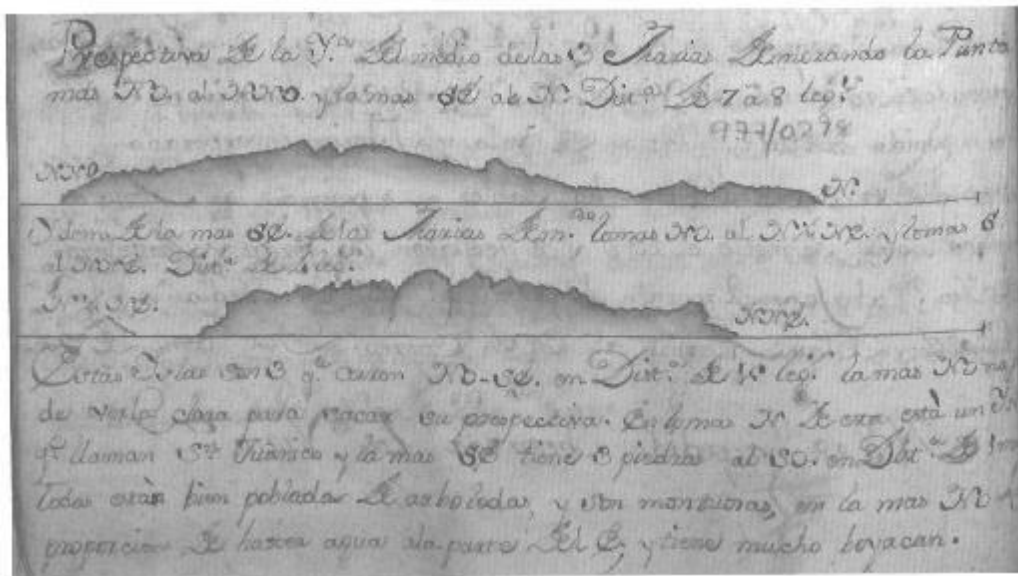 Prospectiva de la Y.ª del medio de las 3 Marias demorando la Punta
mas NO. al NNO. y la mas SE al N. Dist.ª de 7 a 8 leg.s
977/0278
NNO. N.
Ydem de la mas SE. de las Marias lo mas NO. al N. NE. y lo mas S
al NNE. Dist.ª de leg.s
NNE.
Estas Yslas son 3 q.e corren NO-SE. en Dist.ª de leg.s la mas NO no
de verla clara para sacar su prospectiva. En lo mas N de esta està un
q.e llaman S.n Juanico y la mas SE tiene 3 piedras al SO. en Dist.ª de
todas están bien poblada de arboledas, y son montuosas, en la mas NO
proporcion de hacer agua a la parte del E, y tiene mucho Goyacan.